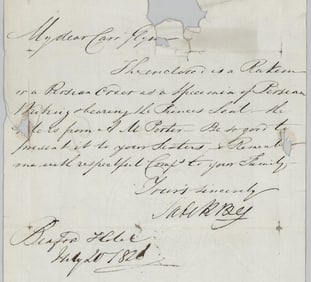 My dear Carr Glyn
The enclosed is a Rakem
or a Persian Order as a Specimen of Persian
Writing & bearing the Princes Seal – the
is from A M Porter – Be so good to
present it to your Sisters & Remember
me with respectful Comps to your Family –
Yours sincerely
Hotel
July 20 182